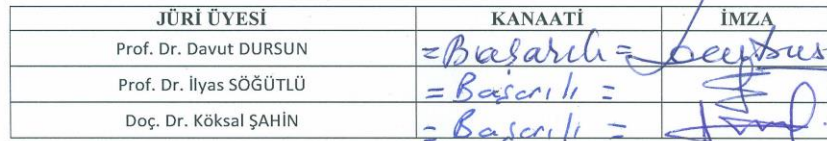 JÜRİ ÜYESİ KANAATİ İMZA
Prof. Dr. Davut DURSUN =Başarılı=
Prof. Dr. İlyas SÖĞÜTLÜ =Başarılı=
Doç. Dr. Köksal ŞAHİN =Başarılı=